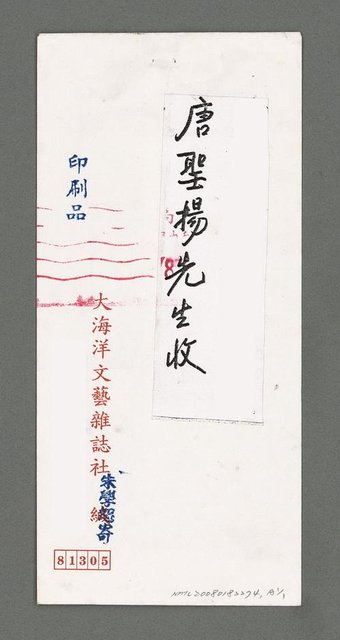 唐聖揚先生收
印刷品
大海洋文藝雜誌社
朱學恕寄
81305
NMTL20080182274, A1/1